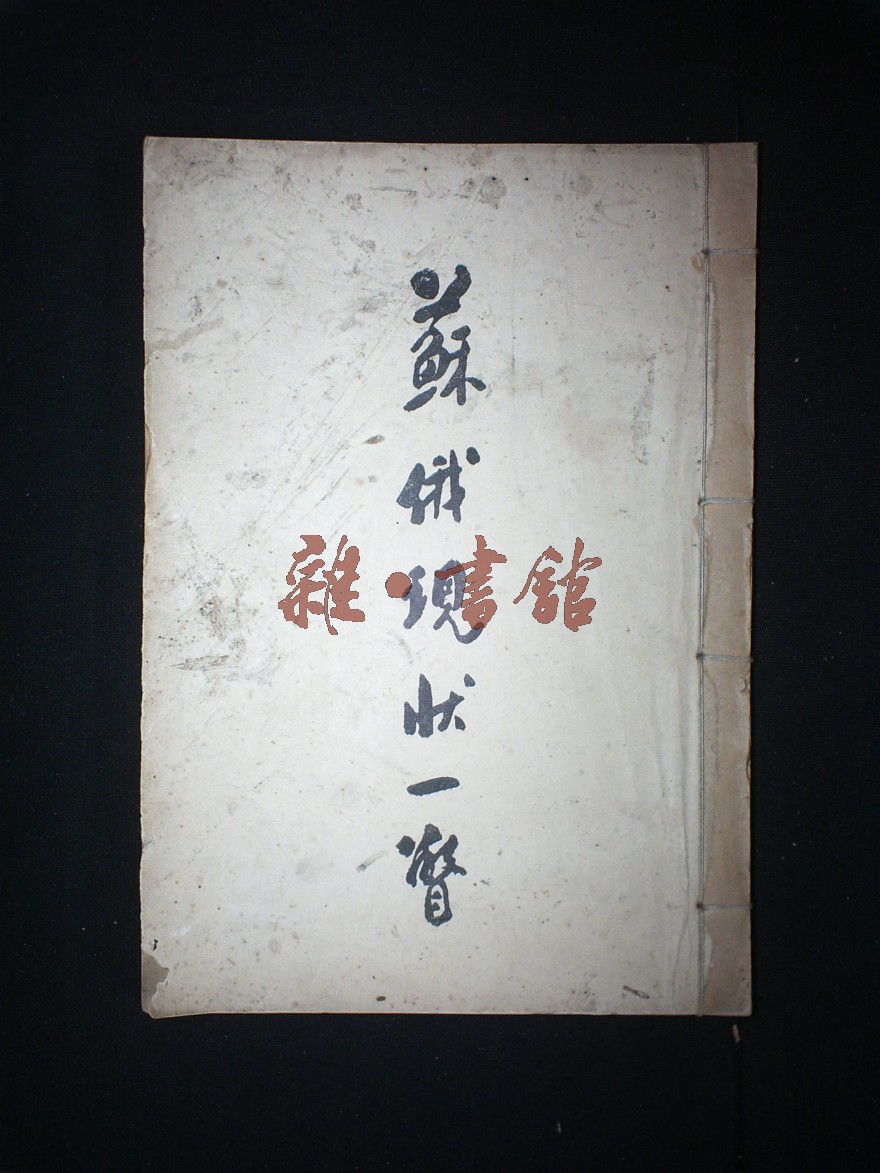 蘇俄現狀一瞥
雜·書館